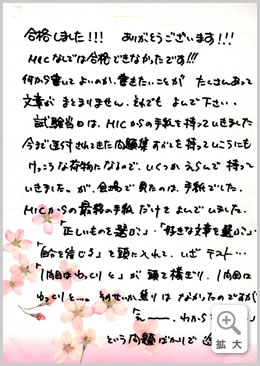 合格しました!!! ありがとうございます!!!
MICなしでは合格できなかったです!!!
何から書いてよいのか、書きたいことが たくさんあって
文章が まとまりません。それでも よんで下さい。
試験当日は、MICからの手紙を持っていきました
今まで送付されてきた問題集すべてを持っていこうにも
けっこうな荷物になるので、いくつか えらんで 持って
いきました。が、会場で 見たのは、手紙でした。
MICからの最終の手紙 だけを よんでいました。
「正しいものを選ぶこ」、「好きな文章を選ぶこ」
「自分を信じる」を頭に入れて、いざ テスト…
「1問目はゆっくりと」が 頭を横ぎり、1問目は
ゆっくりと…。そのせいか焦りは なかったのですが
「え――、わから
という問題ばかりで
拡大